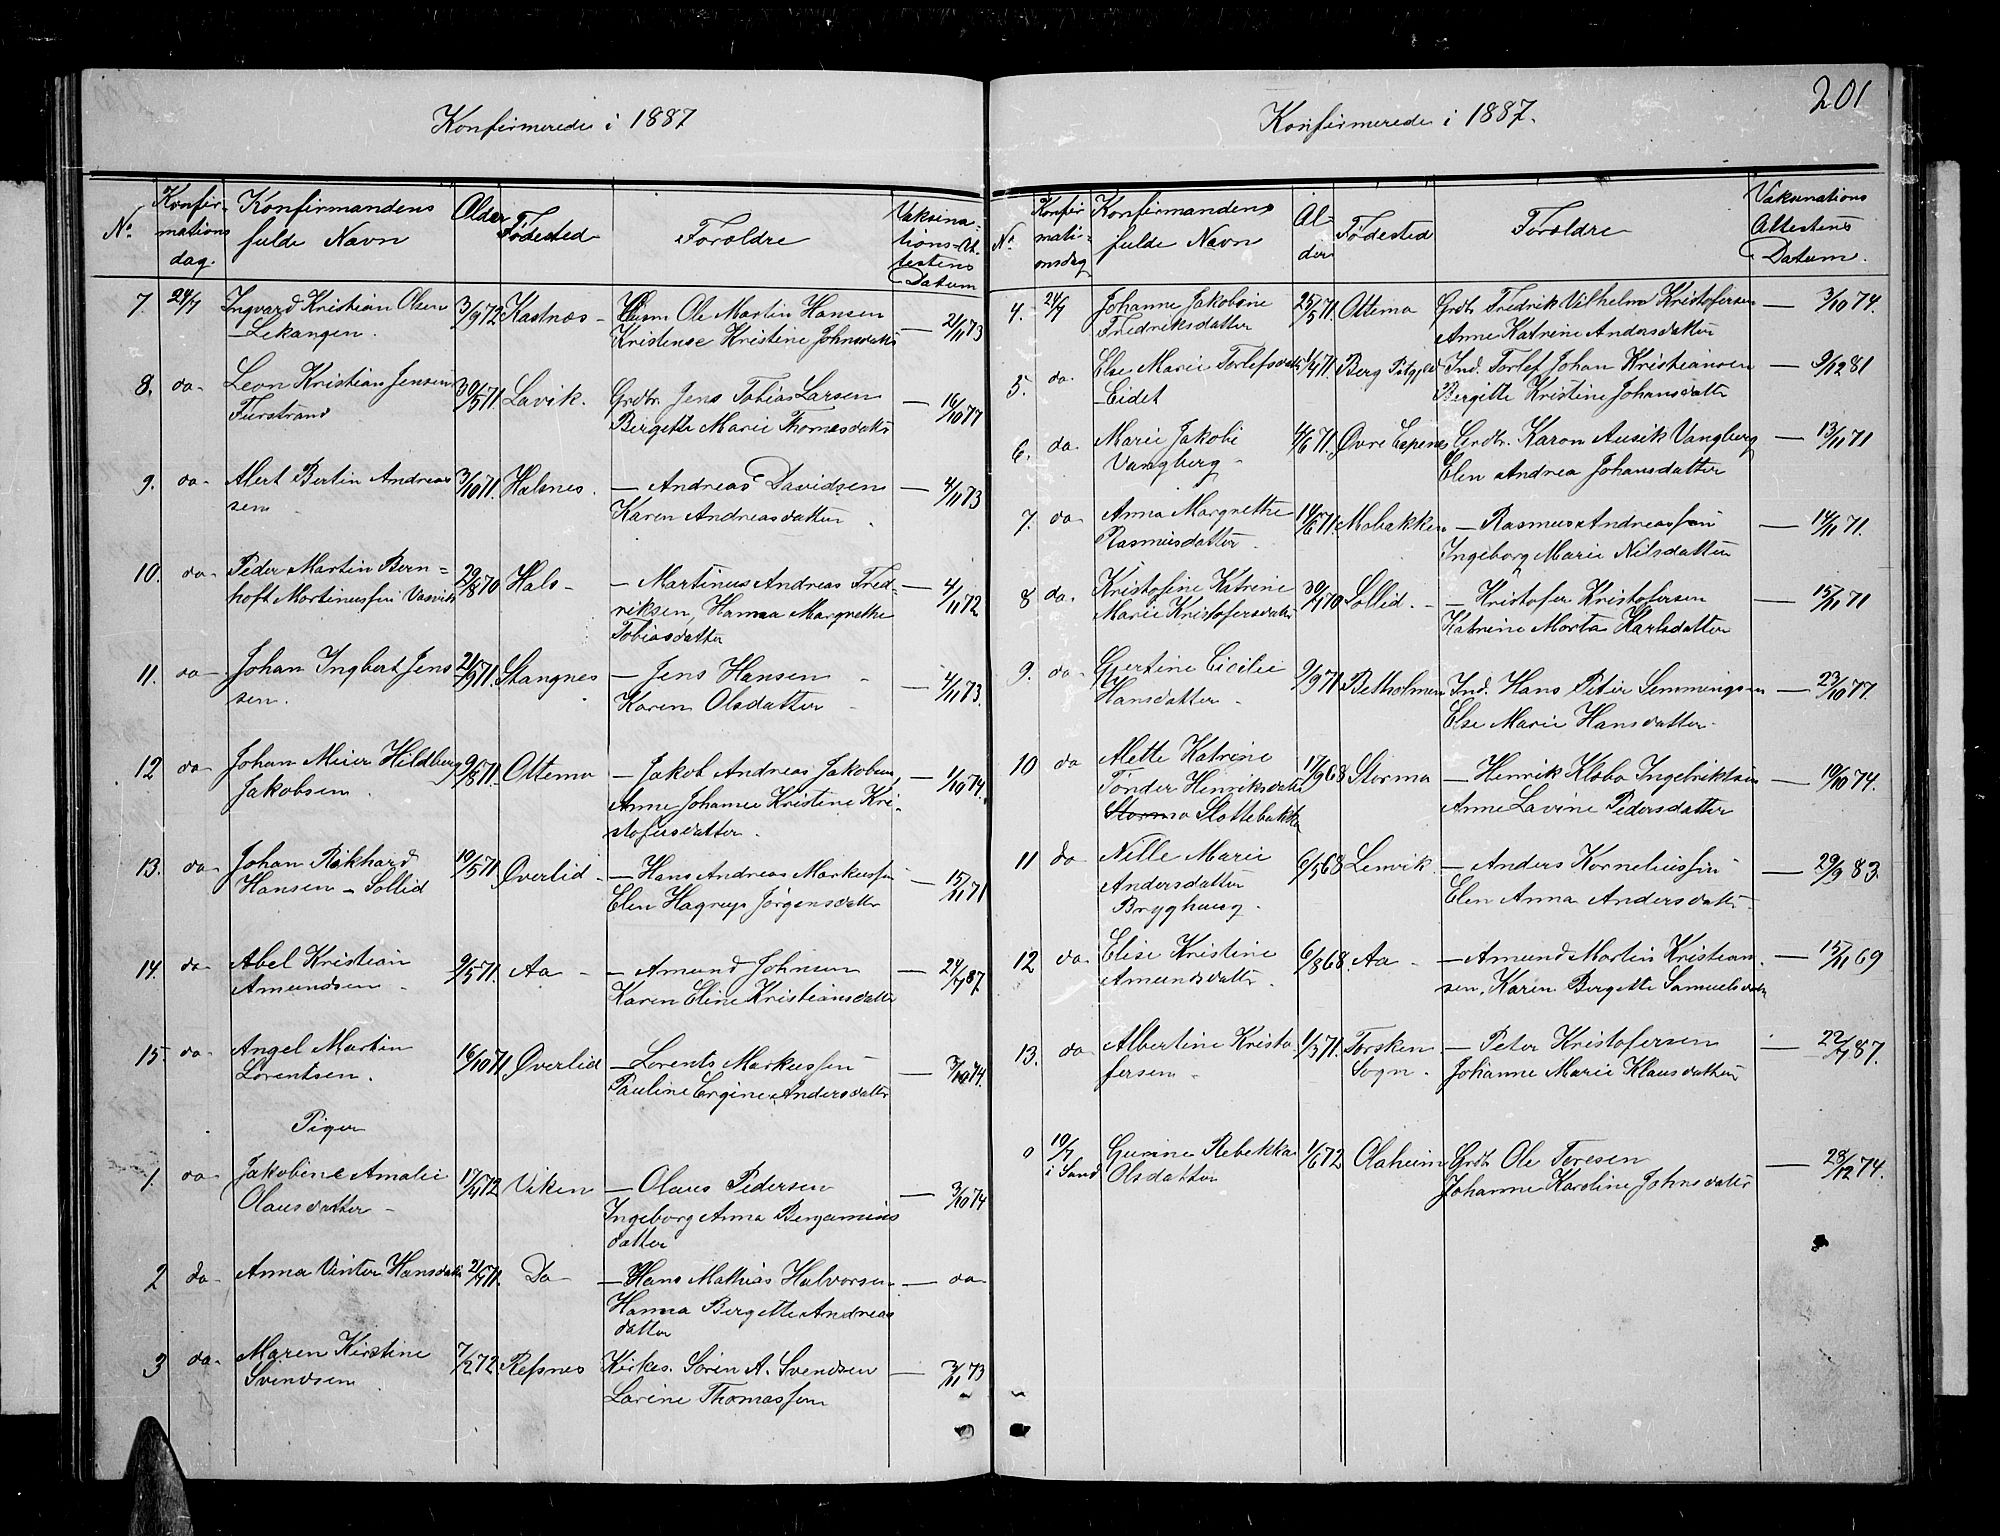 Konfirmerede i 1887
No.
Konfir-
mations
dag.
Konfirmandens
fulde Navn
Alder
Fødested
Foræld­re
Vaksina-
tions-At-
testens
Datum
7. 24/7 Ingvard Kristian Olsen 3/9 72 Kastnæs - Ole Martin Hansen
Lekangen. Kristine Johnsdatter — 2/11 73
8. do- Leon Kristian Jensen 30/5 71. Lavik. Grdbr. Jens Tobias Larsen
Furstrand Bergette Marie Thomasdatter — 16/10 77
9. do- Alert Bertin Andreas 3/10 71. Halsnes. — Andreas Davidsen — 4/11 73
sen Karen Andreasdatter
10. do- Peder Martin Bern= 29/8 70 Hals- — Martinus Andreas Fred- — 4/11 72
hoft Martinussen Vasvik riksen, Hanna Margrethe
Tobiasdatter
11. do- Johan Ingbert Jens 21/9 71. Stangnes — Jens Hansen — 4/11 73.
sen. Karen Olsdatter
12 do- Johan Meier Hildberg 9/8 71. Ottemo — Jakob Andreas Jakobsen — 1/10 74.
Jakobsen. Anne Johanna Kristine Kri-
stofersdatter.
13. do- Johan Rikhard 19/5 71 Øverlid- — Hans Andreas Markussen — 15/11 71
Hansen - Sollid Elen Hagrup Jørgensdatter
14. do- Abel Kristian 9/5 71. Aa - — Amund Johnsen — 24/7 87.
Amundsen - Karen Eline Kristiansdatter
15. do- Angel Martin 16/10 71 Øverlid — Lorents Markussen — 3/10 74.
Lorentsen. Pauline Ergine Andersdatter
Piger
1. do- Jakobine Amalie 17/4 72 Viken — Olaus Pedersen — 3/10 74
Olausdatter - Ingeborg Anna Benjamins
datter
2 do- Anna Vinter Hansdatter 21/7 71. Do — Hans Mathias Halvorsen — do
Hanna Bergette Andreas
datter
3 do- Maren Kirstine 7/2 72. Refsnes Kirkes. Søren A. Svendsen — 2/11 73
Svendsen Lavine Thomassen
201
Konfirmerede i 1887.
No.
Konfir
mati-
onsdag
Konfirmandens
fulde Navn
Al-
der
Fødested
Forældre
Vaksinations
Attestens
Datum.
4. 24/7 Johanne Jakobine 25/5 71. Ottemo Grdbr Fredrik Vilhelm Kristofersen — 3/10 74.
Fredriksdatter Anne Katrine Andersdatter
5. do. Else Marie Torlefsdatter 71. Berg Ind. Torlef Johan Kristiansen — 9/12 81
Eidet Bergitte Kristine Johansdatter
6. do. Marie Jakobe 71. Øvre Espenes Grdbr. Karon Ausik Vangberg — 13/11 71
Vangberg - Elen Andrea Johansdatter
7. do Anna Margrethe 14/6 71. Mobakken — Rasmus Andreassen — 14/11 71.
Rasmusdatter. Ingeborg Marie Nilsdatter
8 do. Kristofine Katrine 30/ 70 Sollid. - — Kristofer Kristofersen — 15/11 71
Marie Kristofersdatter Katrine Morta Karlsdatter
9. do Gjertine Cicilie 9/9 71 Betholmen Ind. Hans Peter Semmingsen — 23/10 77.
Hansdatter. Else Marie Hansdatter.
10 do Mette Katrine 17/9 68 Stormo — Henrik Klæbo Ingebriktsen — 19/10 74.
Tønder Henriksdatter Anne Lavine Pedersdatter
Stormo Slottebakken
11 do Nille Marie 6/5 68 Lenvik. — Anders Korneliussen — 29/9 83.
Andersdatter Elen Anna Andersdatter.
Bryghaug.
12 do- Elise Kristine 6/8 68. Aa- — Amund Martin Kristian- — 15/11 69
Amundsdatter. sen, Karen Bergette Samuelsdatter
13. do Albertine Kristo 1/3 71. Torsken — Peter Kristofersen — 22/7 87.
fersen - Sogn. Johanne Marie Klausdatter
0 10/7 Gurine Rebekka 1/6 72 Olaheim Grdb Ole Toresen — 28/12 74.
i Sand Olsdatter Johanne Karoline Johnsdatter